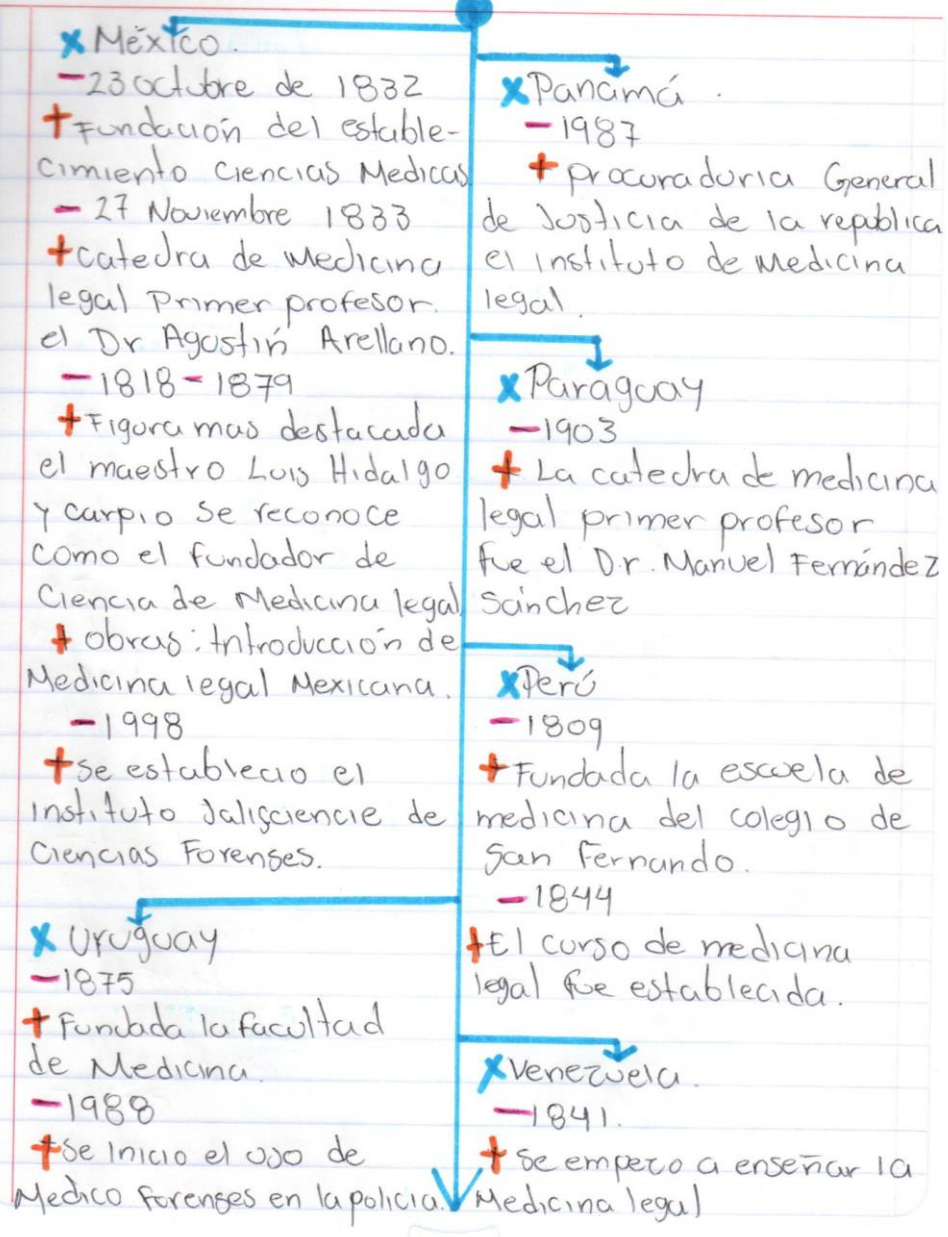 México.
-23 octubre de 1832
+ Fundación del estable-
cimiento Ciencias Medicas
- 27 Noviembre 1833
+ catedra de Medicina
legal Primer profesor.
el Dr Agustín Arellano.
- 1818 - 1879
+ Figura mas destacada
el maestro Luis Hidalgo
y carpio se reconoce
como el fundador de
Ciencia de Medicina legal
+ obras: Introducción de
Medicina legal Mexicana.
- 1998
+ se establecio el
instituto Jalisciencie de
Ciencias Forenses.
x Uruguay
- 1875
+ Fundada la facultad
de Medicina.
- 1988
+ Se inicio el uso de
Medico forenses en la policia.
x Panamá.
- 1987
+ procuraduria General
de Justicia de la republica
el instituto de Medicina
legal.
x Paraguay
- 1903
+ La catedra de medicina
legal primer profesor
fue el Dr. Manuel Fernández
Sánchez
x Perú
- 1809
+ Fundada la escuela de
medicina del colegio de
San Fernando.
- 1844
+ El curso de medicina
legal fue establecida.
x Venezuela.
- 1841.
+ Se empezo a enseñar la
Medicina legal